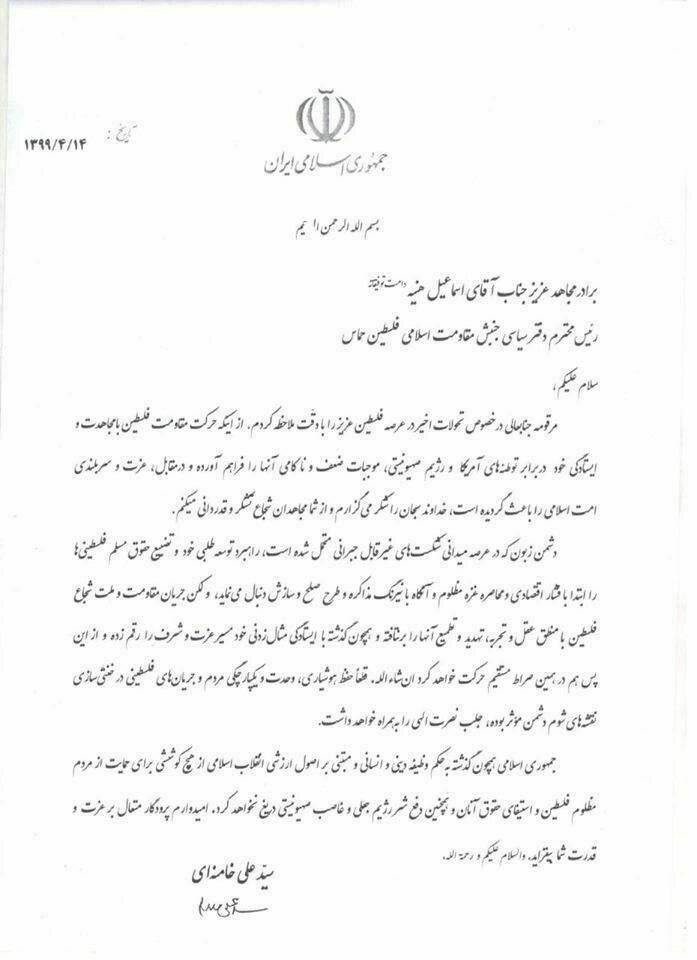 تاریخ :
۱۳۹۹/۴/۱۴
جمهوری اسلامی ایران
بسم الله الرحمن الرحیم
برادر مجاهد عزیز جناب آقای اسماعیل هنیه دامت توفیقاته
رئیس محترم دفتر سیاسی جنبش مقاومت اسلامی فلسطین حماس
سلام علیکم،
مرقومه جنابعالی در خصوص تحولات اخیر در عرصه فلسطین عزیز را با دقّت ملاحظه کردم. از اینکه حرکت مقاومت فلسطین با مجاهدت و
ایستادگی خود در برابر توطئه‌های آمریکا و رژیم صهیونیتی، موجبات ضعف و ناکامی آنها را فراهم آورده و در مقابل، عزت و سربلندی
امت اسلامی را باعث گردیده است، خداوند سبحان را شکر می گزارم و از شما مجاهدان شجاع تشکر و قدردانی میکنم.
دشمن زبون که در عرصه میدانی شکست‌های غیرقابل جبرانی متحمل شده است، راهبرد توسعه طلبی خود و تضییع حقوق مسلم فلسطینی‌ها
را ابتدا با فشار اقتصادی و محاصره غزه مظلوم و آنگاه با نیرنگ مذاکره و طرح صلح و سازش دنبال می‌نماید، ولکن جریان مقاومت و ملت شجاع
فلسطین با منطق عقل و تجربه، تهدید و تطمیع آنها را برنتافته و همچون گذشته با ایستادگی مثال زدنی خود مسیر عزت و شرف را رقم زده و از این
پس هم در همین صراط مستقیم حرکت خواهد کرد ان‌شاءالله. قطعاً حفظ هوشیاری، وحدت و یکپارچگی مردم و جریان‌های فلسطینی در خنثی سازی
نقشه‌های شوم دشمن مؤثر بوده، جلب نصرت الهی را به همراه خواهد داشت.
جمهوری اسلامی همچون گذشته به حکم وظیفه دینی و انسانی و مبتنی بر اصول ارزشی انقلاب اسلامی از هیچ کوششی برای حمایت از مردم
مظلوم فلسطین و استیفای حقوق آنان و همچنین دفع شر رژیم جعلی و غاصب صهیونیتی دریغ نخواهد کرد. امیدوارم پروردگار متعال بر عزت و
قدرت شما بیفزاید. والسلام علیکم و رحمة الله.
سیّد علی خامنه‌ای